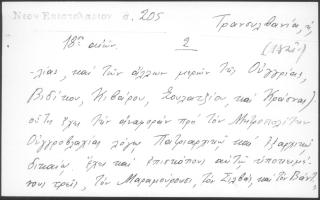 Νεον Επιστολαριον σ. 205
Τρανσυλβανίας, ή
18ος αιών. 2 (18ος)
-λίας, καὶ τῶν ἄλλων μερῶν τῆς Οὐγγρίας,
Βιδίκου, Κιβάρου, Σολνατζίου, καὶ Κράσνας)
οὗτος ἔχει τὴν ἀναφορὰν πρὸ τοῦ Μητροπολίτου
Οὐγγροβλαχίας λόγῳ Πατριαρχικῷ καὶ Ἐξαρχικῷ
δικαίῳ, ἔχει καὶ ἐπισκόπους αὐτῷ ὑποκειμέ-
νους τρεῖς, τὸν Μαραμούρεσι, τὸν Σίλβας, καὶ τὸν